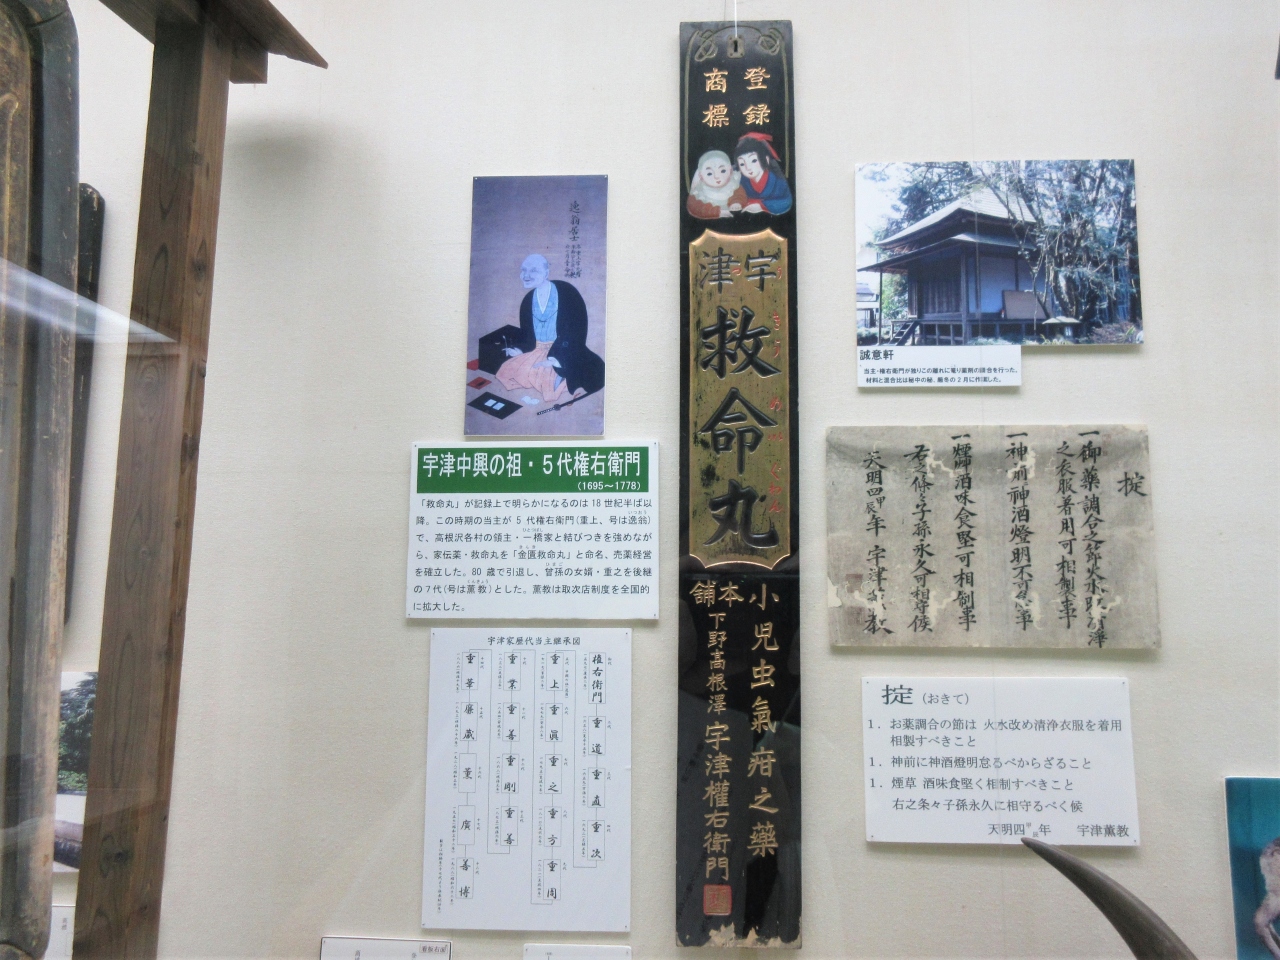 登録
商標
宇津
救命丸
小児虫氣疳之藥
本舗
下野高根澤 宇津權右衛門
逸翁居士
宇津中興の祖・5代権右衛門
(1695～1778)
「救命丸」が記録上で明らかになるのは18世紀半ば以
降。この時期の当主が5代権右衛門(重上、号は逸翁)
で、高根沢各村の領主・一橋家と結びつきを強めなが
ら、家伝薬・救命丸を「金匱救命丸」と命名、売薬経営
を確立した。80歳で引退し、曽孫の女婿・重之を後継
の7代(号は薫教)とした。薫教は取次店制度を全国的
に拡大した。
宇津家歴代当主継承図
権右衛門
重道
重直
重次
重上
重眞
重之
重方
重周
重業
重善
重剛
重善
重華
廉蔵
薫
廣
善博
誠意軒
当主・権右衛門が独りこの離れに篭り薬剤の調合を行った。
材料と混合比は秘中の秘、厳冬の2月に作業した。
掟
一御薬調合之節火水改清浄
之衣服着用可相製事
一神前神酒燈明不可怠事
一煙草酒味食堅可相制事
右之條々子孫永久可相守候
天明四甲辰年 宇津薫教
掟(おきて)
1. お薬調合の節は 火水改め清浄衣服を着用
相製すべきこと
1. 神前に神酒燈明怠るべからざること
1. 煙草 酒味食堅く相制すべきこと
右之条々子孫永久に相守るべく候
天明四甲辰年 宇津薫教